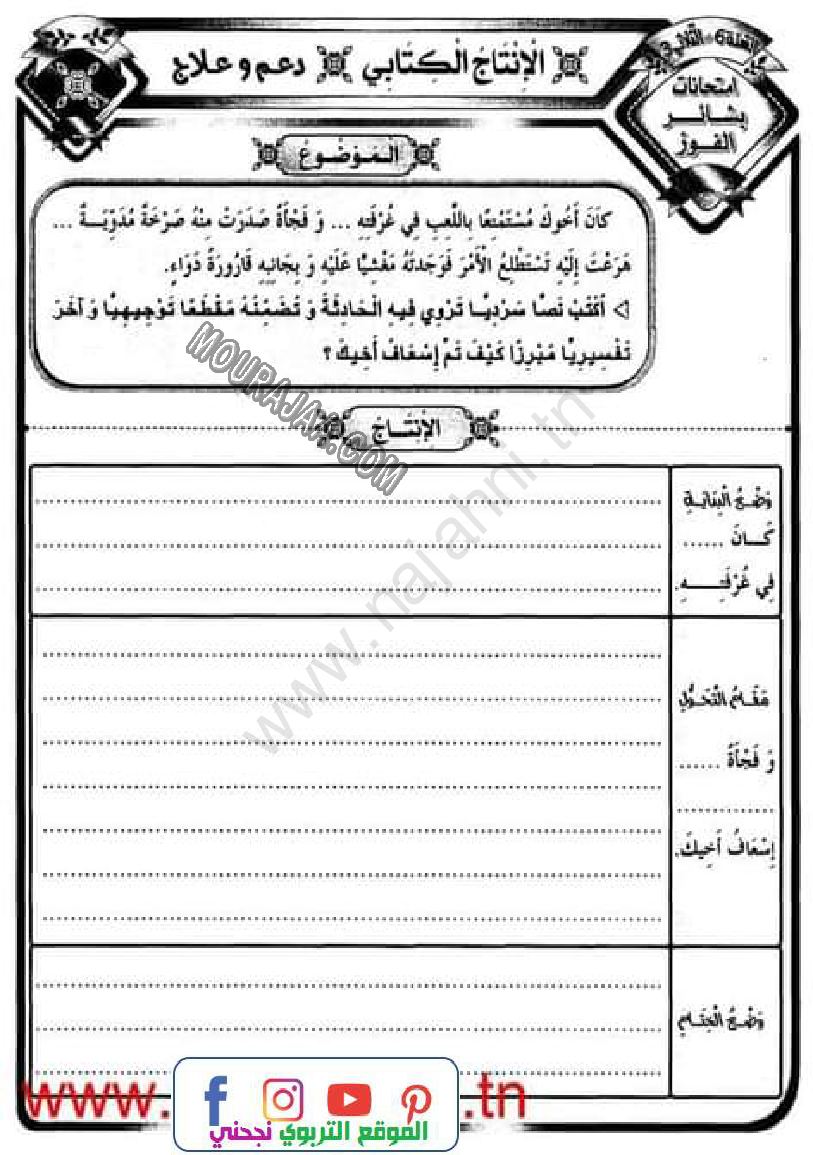 السّنة 6 - الثّلاثي 3
امتحانات
بشائر
الفوز
الْإِنْتَاجُ الْكِتَابِي دعم و علاج
الْمَوْضُوعُ
كَانَ أَخُوكَ مُسْتَمْتِعًا بِاللَّعِبِ فِي غُرْفَتِهِ ... وَ فَجْأَةً صَدَرَتْ مِنْهُ صَرْخَةٌ مُدَوِّيَةٌ ...
هَرَعْتَ إِلَيْهِ تَسْتَطْلِعُ الْأَمْرَ فَوَجَدتَهُ مَغْشِيًّا عَلَيْهِ وَ بِجَانِبِهِ قَارُورَةُ دَوَاءٍ.
أُكْتُبْ نَصًّا سَرْدِيًّا تَرْوِي فِيهِ الْحَادِثَةَ وَ تُضَمِّنُهُ مَقْطَعًا تَوْجِيهِيًّا وَ آخَرَ
تَفْسِيرِيًّا مُبْرِزًا كَيْفَ تَمَّ إِسْعَافُ أَخِيكَ ؟
MOURAJAA.COM
الْإِنْتَاجُ
www.najahni.tn
وَضْعُ الْبِدَايَةِ
كَانَ ......
فِي غُرْفَتِهِ.
مَقَامُ التَّحَوُّلِ
وَ فَجْأَةً ......
................
إِسْعَافُ أَخِيكَ.
وَضْعُ الْخِتَامِ
www. .tn
الموقع التربوي نجحني